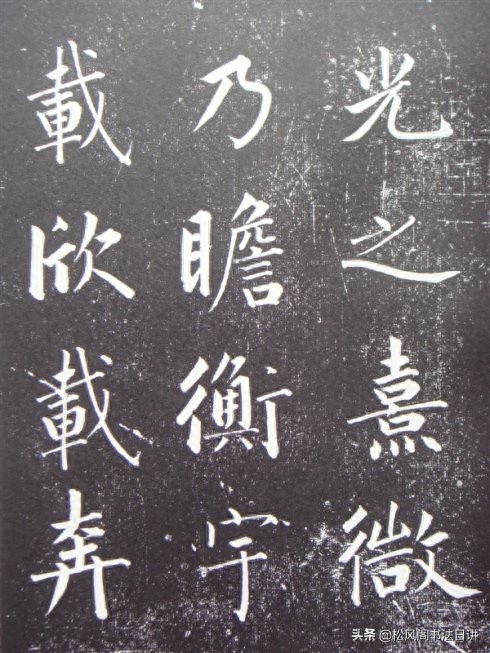 光之熹微
乃瞻衡宇
載欣載奔
头条 @松风阁书法日讲